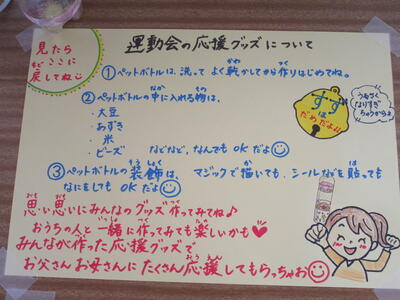 見たら
ここに
戻してね
運動会の応援グッズについて
①ペットボトルは、洗って よく乾かしてから作りはじめてね。
②ペットボトルの中に入れる物は、
・大豆
・あずき
・米
・ビーズ などなど、なんでも OKだよ
すず
は
だめだよ!!
うるさく
なりすぎ
ちゃうからよ
③ペットボトルの装飾は、マジックで描いても、シールなどを貼っても
なにをしても OKだよ
思い思いにみんなのグッズ作ってみてね♪
おうちの人と一緒に作ってみても楽しいかも♥
みんなが作った応援グッズで
お父さんお母さんにたくさん応援してもらっちゃお